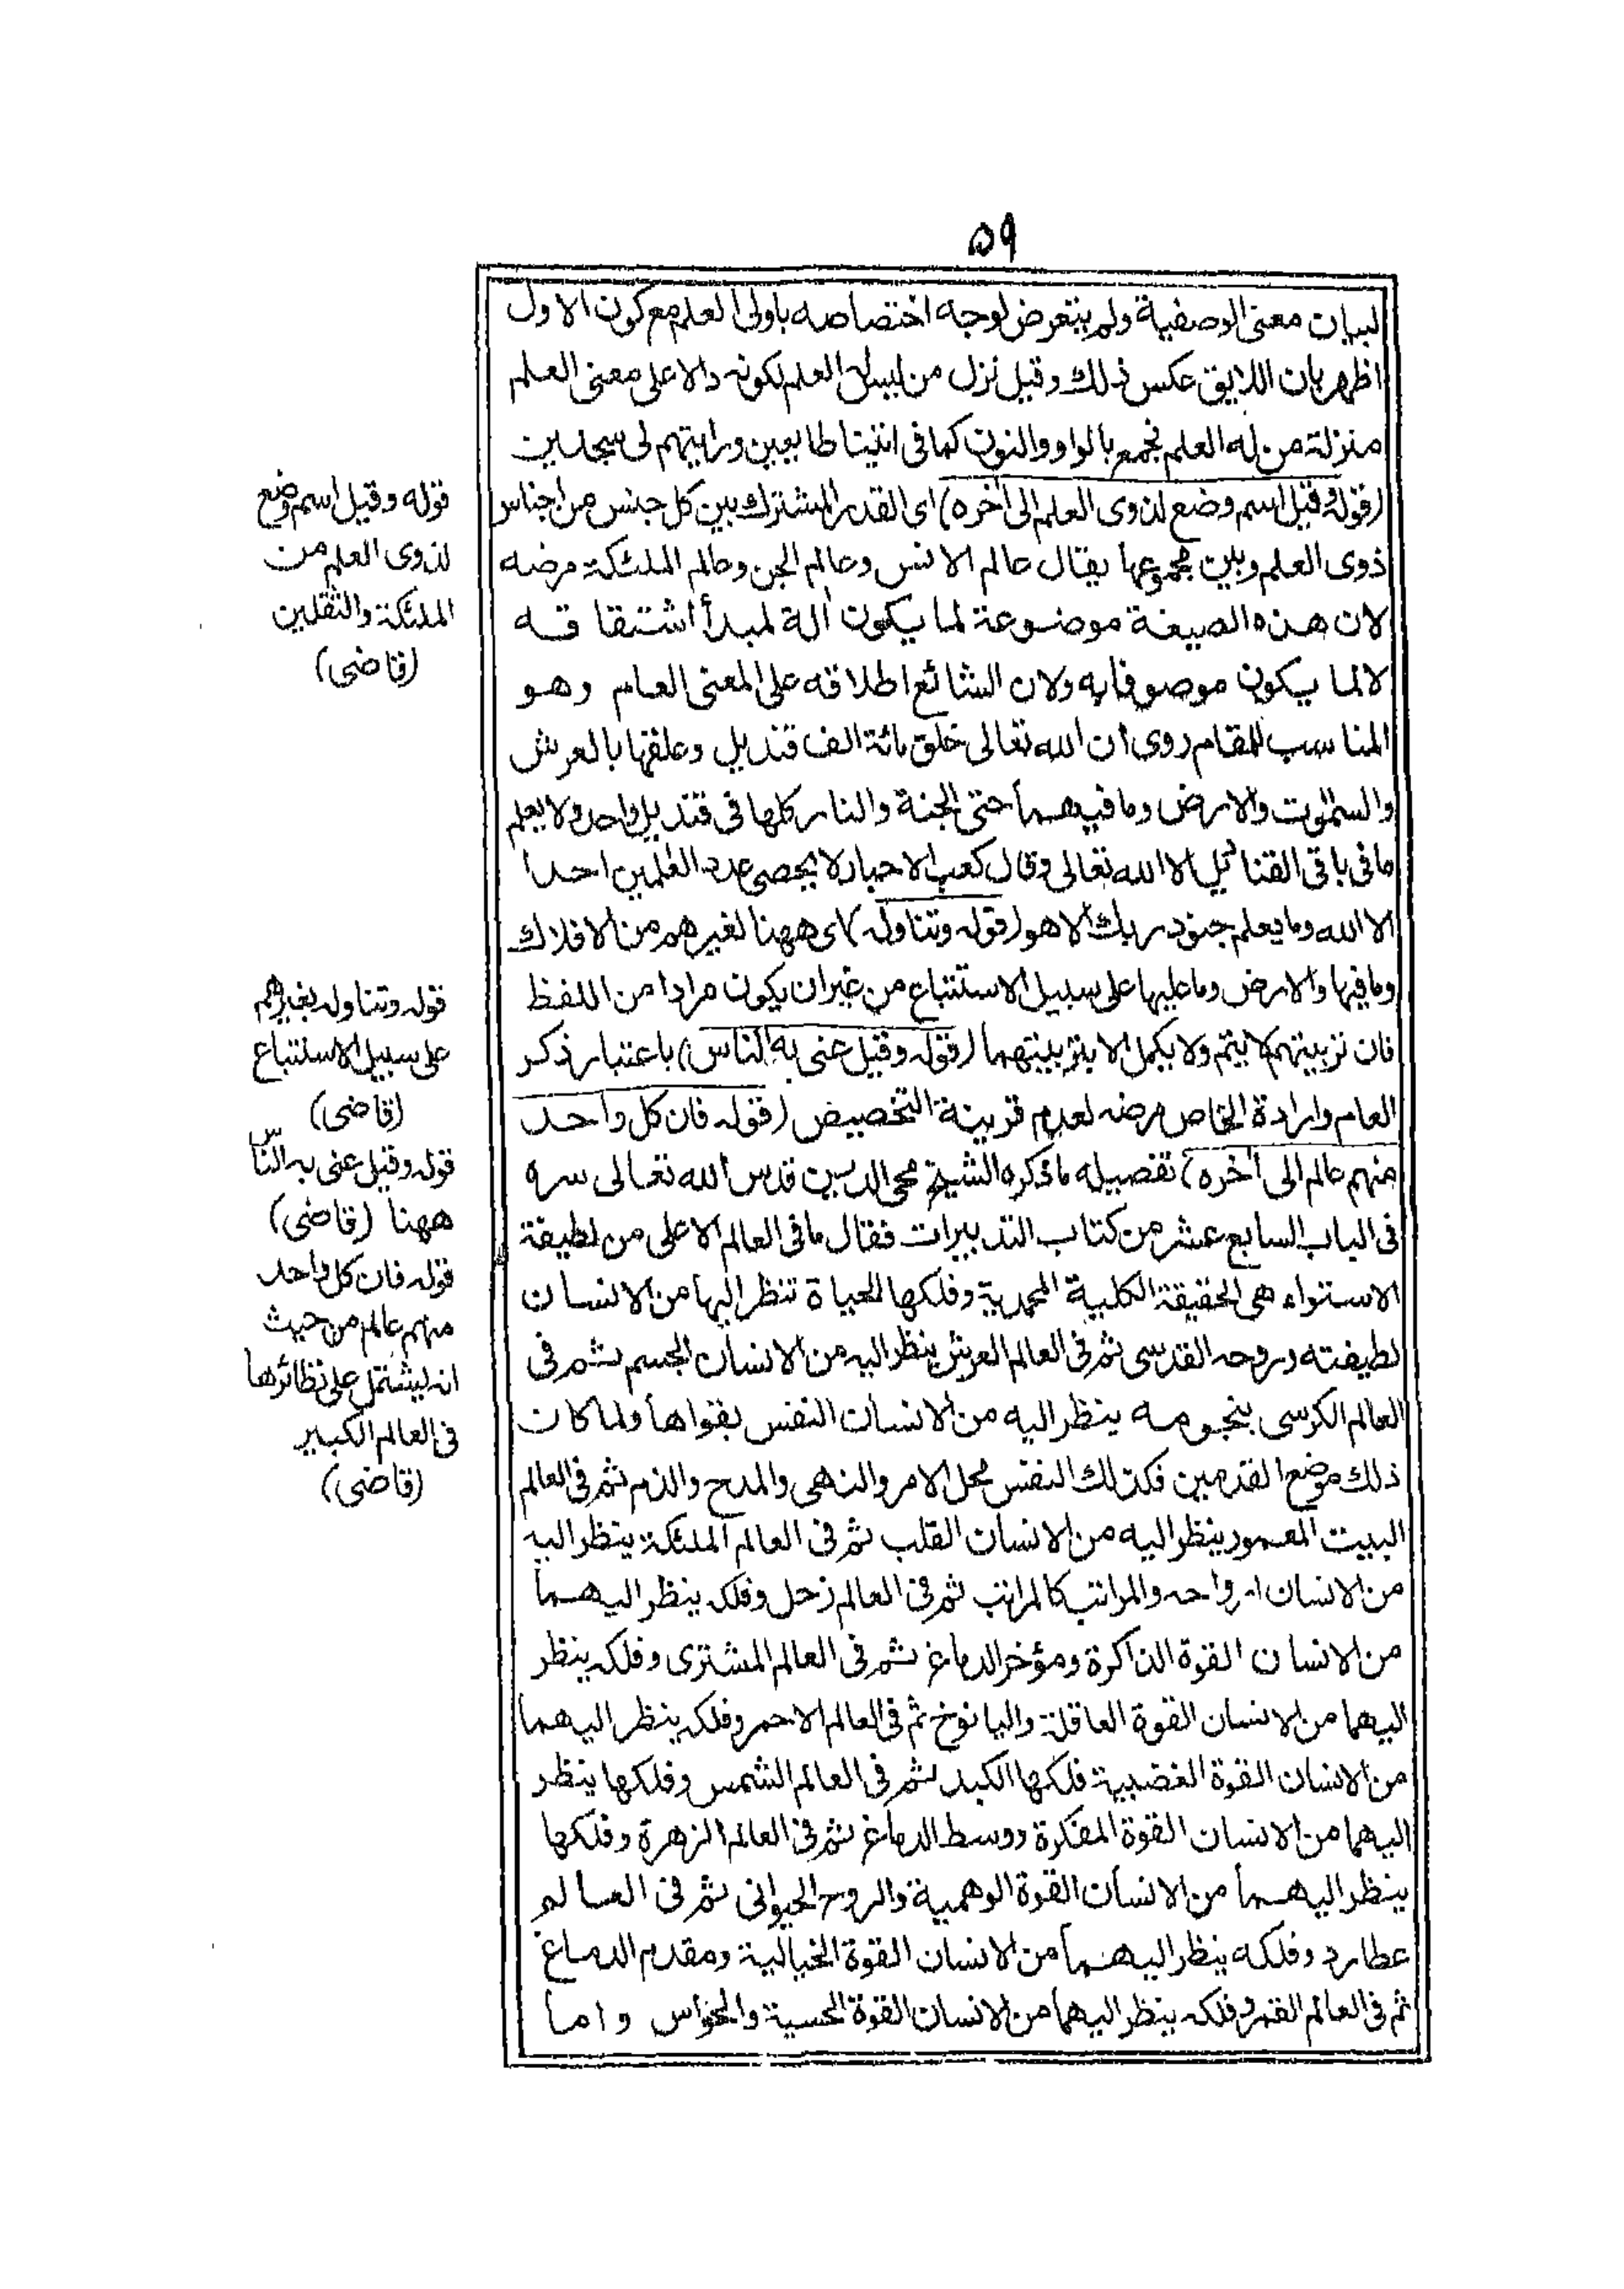 ٥٩
لبيان معنى الوصفية ولم يتعرض لوجه اختصاصه باولى العلم مع كون الاول
اظهر بان اللايق عكس ذلك وقيل نزل من ليس له العلم لكونه دالا على معنى العلم
منزلة من له العلم فجمع بالواو والنون كما فى اتينا طايعين ورايتهم لى سجدين
(قوله وقيل اسم وضع لذوى العلم الى اخره) اى القدر المشترك بين كل جنس من اجناس
ذوى العلم وبين مجموعها يقال عالم الانس وعالم الجن وعالم الملئكة مرضه
لان هذه الصيغة موضوعة لما يكون الة لمبدأ اشتقاقه
لا لما يكون موصوفا به ولان الشائع اطلاقه على المعنى العام وهو
المناسب للمقام روى ان الله تعالى خلق مائة الف قنديل وعلقها بالعرش
والسموت والارض وما فيهما حتى الجنة والنار كلها فى قنديل واحد ولا يعلم
ما فى باقى القناديل الا الله تعالى وقال كعب الاحبار لا يحصى عدد العلمين احدا
الا الله وما يعلم جنود ربك الا هو (قوله وتناوله) اى ههنا لغيرهم من الافلاك
وما فيها والارض وما عليها على سبيل الاستتباع من غير ان يكون مرادا من اللفظ
فان تربيتهم لا يتم ولا يكمل الا بتربيتهما (قوله وقيل عنى به الناس) باعتبار ذكر
العام وارادة الخاص مرضه لعدم قرينة التخصيص (قوله فان كل واحد
منهم عالم الى اخره) تفصيله ما ذكره الشيخ محى الدين قدس الله تعالى سره
فى الباب السابع عشر من كتاب التدبيرات فقال ما فى العالم الاعلى من لطيفة
الاستواء هى الحقيقة الكلية المحمدية وفلكها الحياة تنظر اليها من الانسان
لطيفته وروحه القدسى ثم فى العالم العرش ينظر اليه من الانسان الجسم ثم فى
العالم الكرسى بنجومه ينظر اليه من الانسان النفس بقواها ولما كان
ذلك موضع القدمين فكذلك النفس محل الامر والنهى والمدح والذم ثم فى العالم
البيت المعمور ينظر اليه من الانسان القلب ثم فى العالم الملئكة ينظر اليه
من الانسان ارواحه والمراتب كالمراتب ثم فى العالم زحل وفلكه ينظر اليهما
من الانسان القوة الذاكرة ومؤخر الدماغ ثم فى العالم المشترى وفلكه ينظر
اليهما من الانسان القوة العاقلة واليانوخ ثم فى العالم الاحمر وفلكه ينظر اليهما
من الانسان القوة الغضبية فلكها الكبد ثم فى العالم الشمس وفلكها ينظر
اليهما من الانسان القوة المفكرة ووسط الدماغ ثم فى العالم الزهرة وفلكها
ينظر اليهما من الانسان القوة الوهمية والروح الحيوانى ثم فى العالم
عطارد وفلكه ينظر اليهما من الانسان القوة الخيالية ومقدم الدماغ
ثم فى العالم القمر وفلكه ينظر اليهما من الانسان القوة الحسية والحواس واما
قوله وقيل اسم وضع
لذوى العلم من
الملئكة والثقلين
(قاضى)
قوله وتناوله بغيرهم
على سبيل الاستتباع
(قاضى)
قوله وقيل عنى به الناس
ههنا (قاضى)
قوله فان كل واحد
منهم عالم من حيث
انه ليشتمل على نظائرها
فى العالم الكبير
(قاضى)